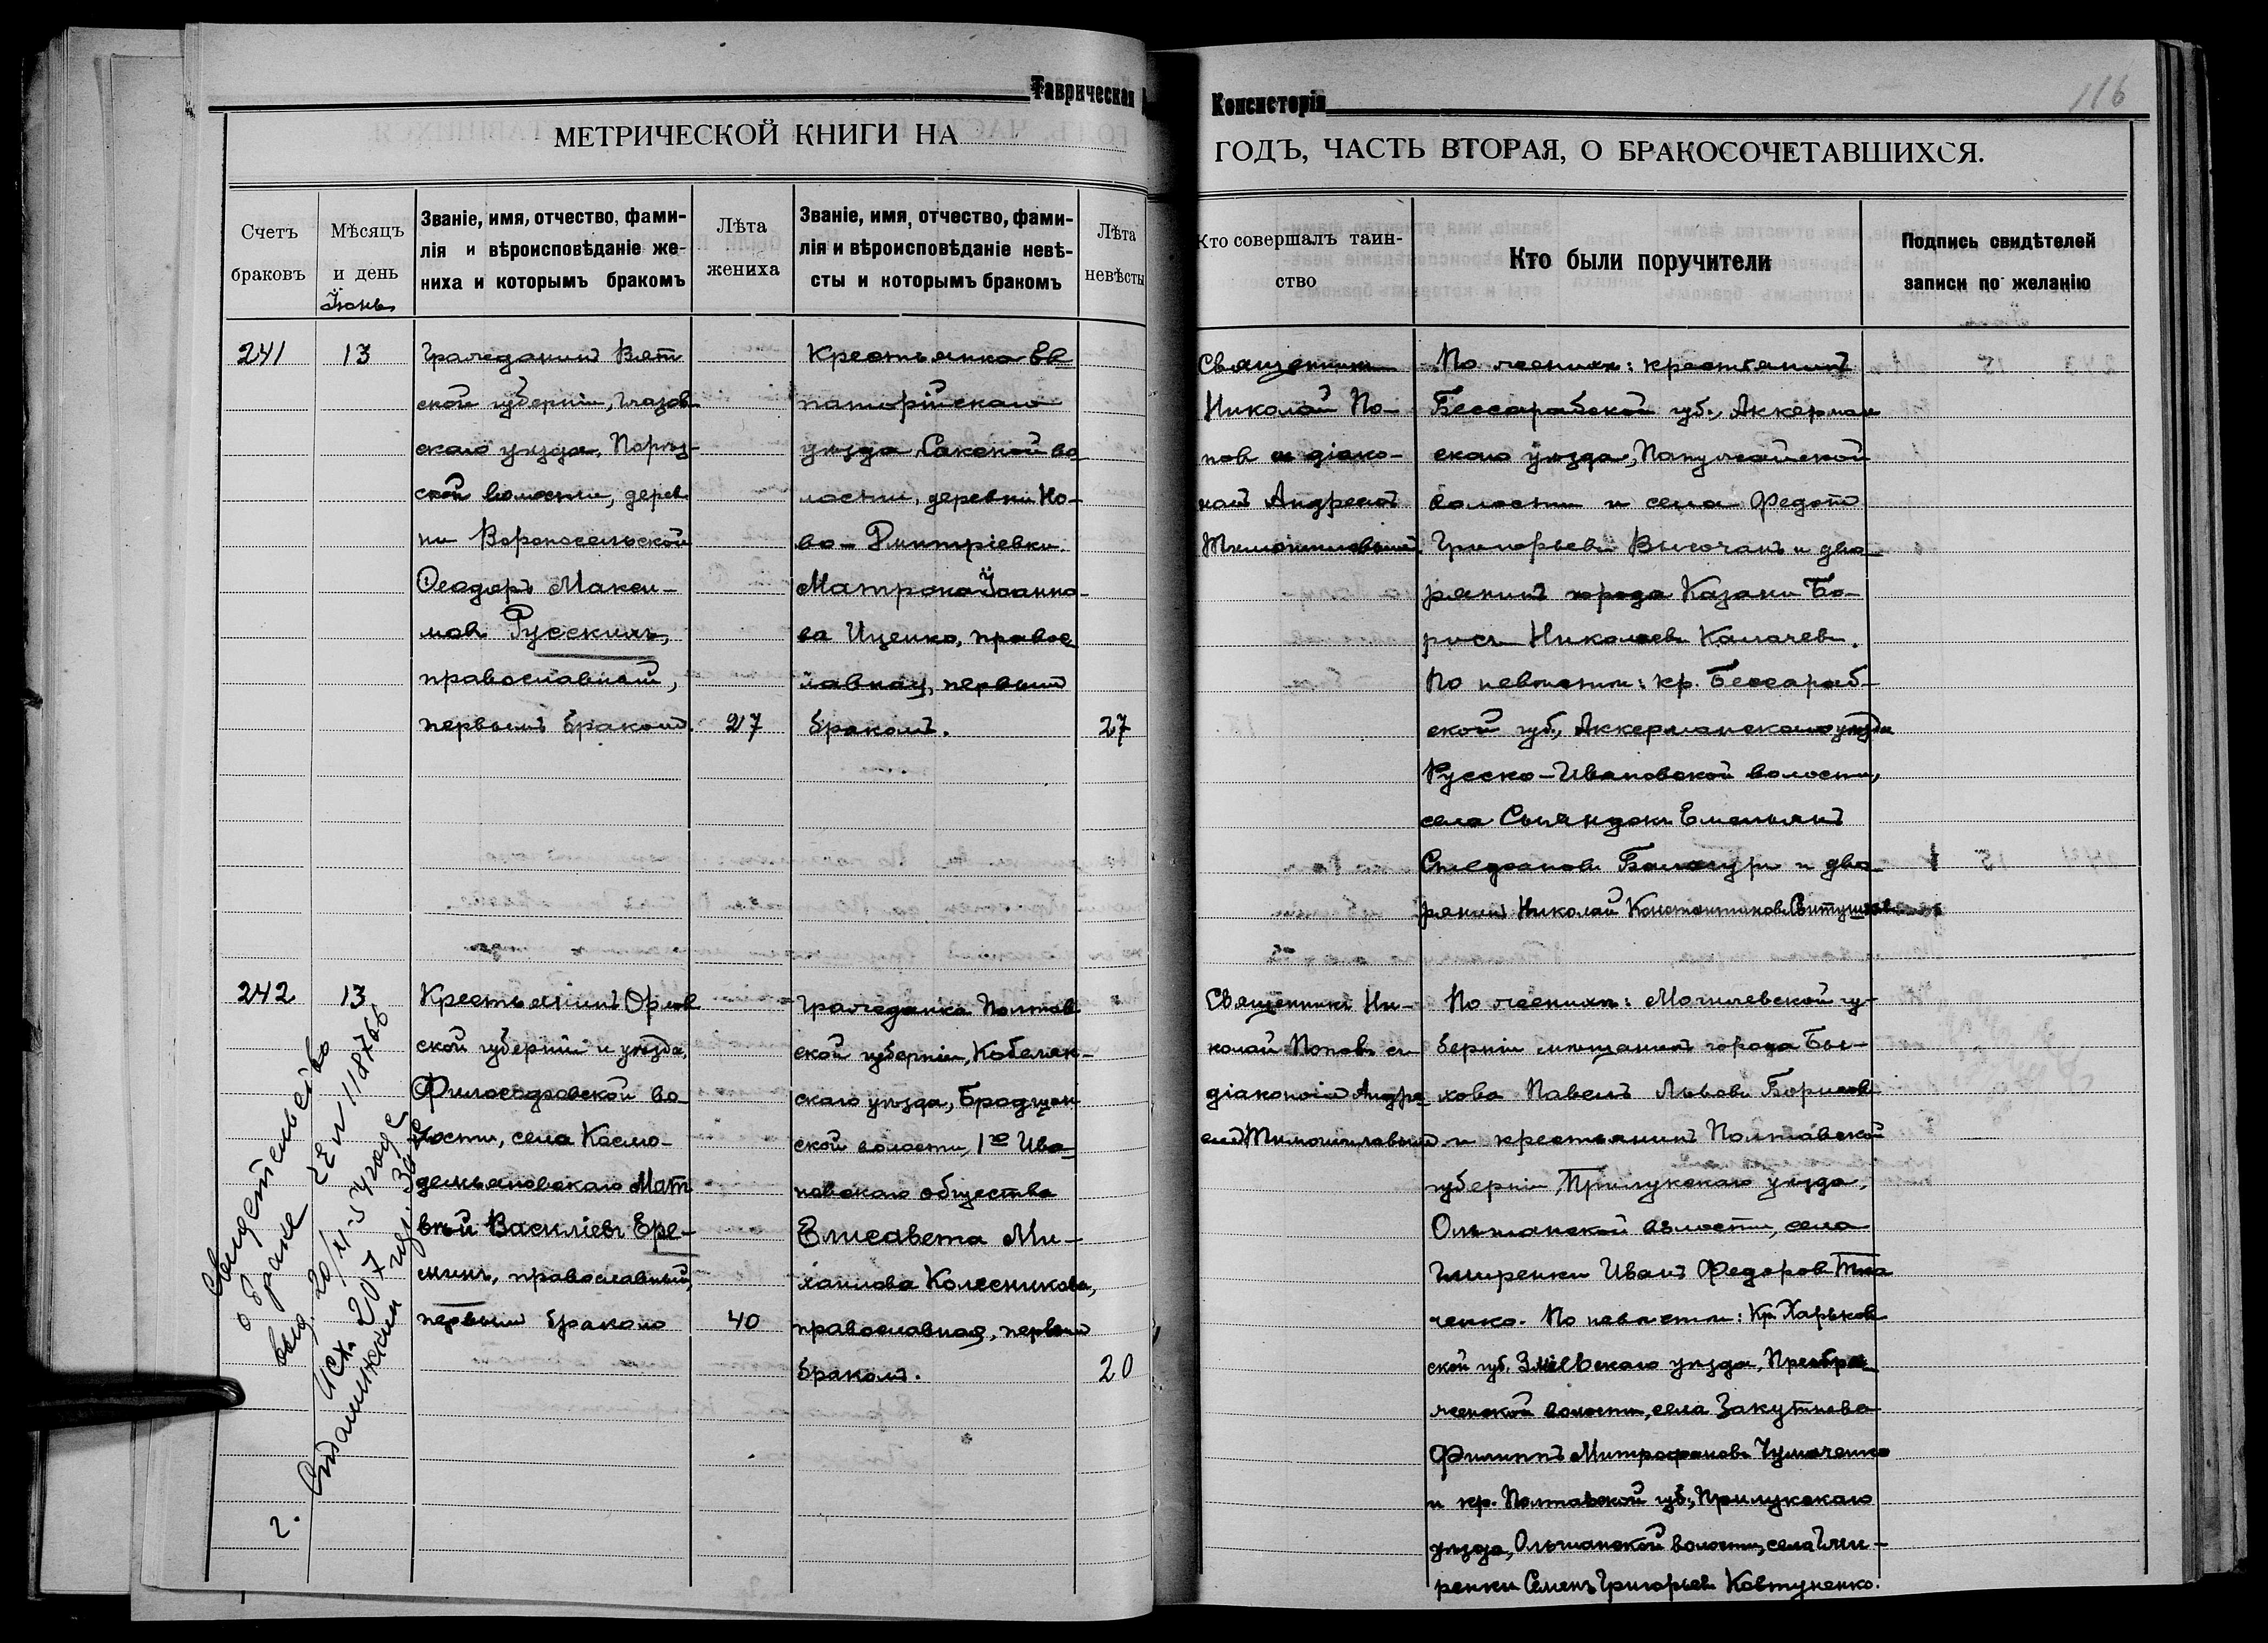 Таврическая
Консисторія
116
МЕТРИЧЕСКОЙ КНИГИ НА
ГОДЪ, ЧАСТЬ ВТОРАЯ, О БРАКОСОЧЕТАВШИХСЯ.
Счетъ
браковъ
Мѣсяцъ
и день
Іюнь
Званіе, имя, отчество, фами-
лія и вѣроисповѣданіе же-
ниха и которымъ бракомъ
Лѣта
жениха
Званіе, имя, отчество, фами-
лія и вѣроисповѣданіе невѣ-
сты и которымъ бракомъ
Лѣта
невѣсты
Кто совершалъ таин-
ство
Кто были поручители
Подпись свидѣтелей
записи по желанію
241
13
Гражданинъ Вят
ской губерніи, Глазов
скаго уѣзда, Порѣз-
ской волости, дерев
ни Воропосельской
Ѳеодоръ Макси-
мовъ Русскихъ,
православный,
первымъ бракомъ.
27
Крестьянка Ев
паторійскаго
уѣзда Сакской во
лости, деревни Но-
во-Дмитріевки
Матрона Іоанно-
ва Иценко, правос
лавная, первымъ
бракомъ.
27
Священникъ
Николай По-
повъ и діако-
номъ Андреемъ
По женихѣ: крестьянинъ
Бессарабской губ., Аккерман
скаго уѣзда, Папушойской
волости и села Федотъ
Григорьевъ Высочанъ и дво-
рянинъ города Казани Бо-
рисъ Николаевъ Калачевъ.
По невѣстѣ: кр. Бессараб-
ской губ., Аккерманскаго уѣзда
Русско-Ивановской волости,
села Емельянъ
Стефановъ и дво-
рянинъ Николай Константиновъ
242
13
Крестьянинъ Орлов
ской губерніи и уѣзда,
Философовской во-
лости, села Космо-
демьяновскаго Мат
вѣй Василіевъ Ере-
минъ, православный,
первымъ бракомъ
40
Гражданка Полтав
ской губерніи, Кобеляк-
скаго уѣзда, Бродщан
ской волости, 1го Ива-
новскаго общества
Елисавета Ми-
хаилова Колесникова,
православная, первымъ
бракомъ.
20
Священникъ Ни-
колай Поповъ съ
діакономъ Андре
емъ
По женихѣ: Могилевской гу-
берніи мѣщанинъ города Бы-
хова Павелъ Львовъ Борисовъ
и крестьянинъ Полтавской
губерніи Прилукскаго уѣзда,
Ольшанской волости, села
Гмиренки Иванъ Федоровъ Тка
ченко. По невѣстѣ: Кр. Харьков
ской губ. Зміевскаго уѣзда, Преобра-
женской волости, села Закутнева
Филиппъ Митрофановъ Чумаченко
и кр. Полтавской губ., Прилукскаго
уѣзда, Ольшанской волости, села Гми-
ренки Семенъ Григорьевъ Ковтуненко.
Свидетельство
о браке ЕЕ № 118766
выд. 20/XI-54 года
исх. 207
г.